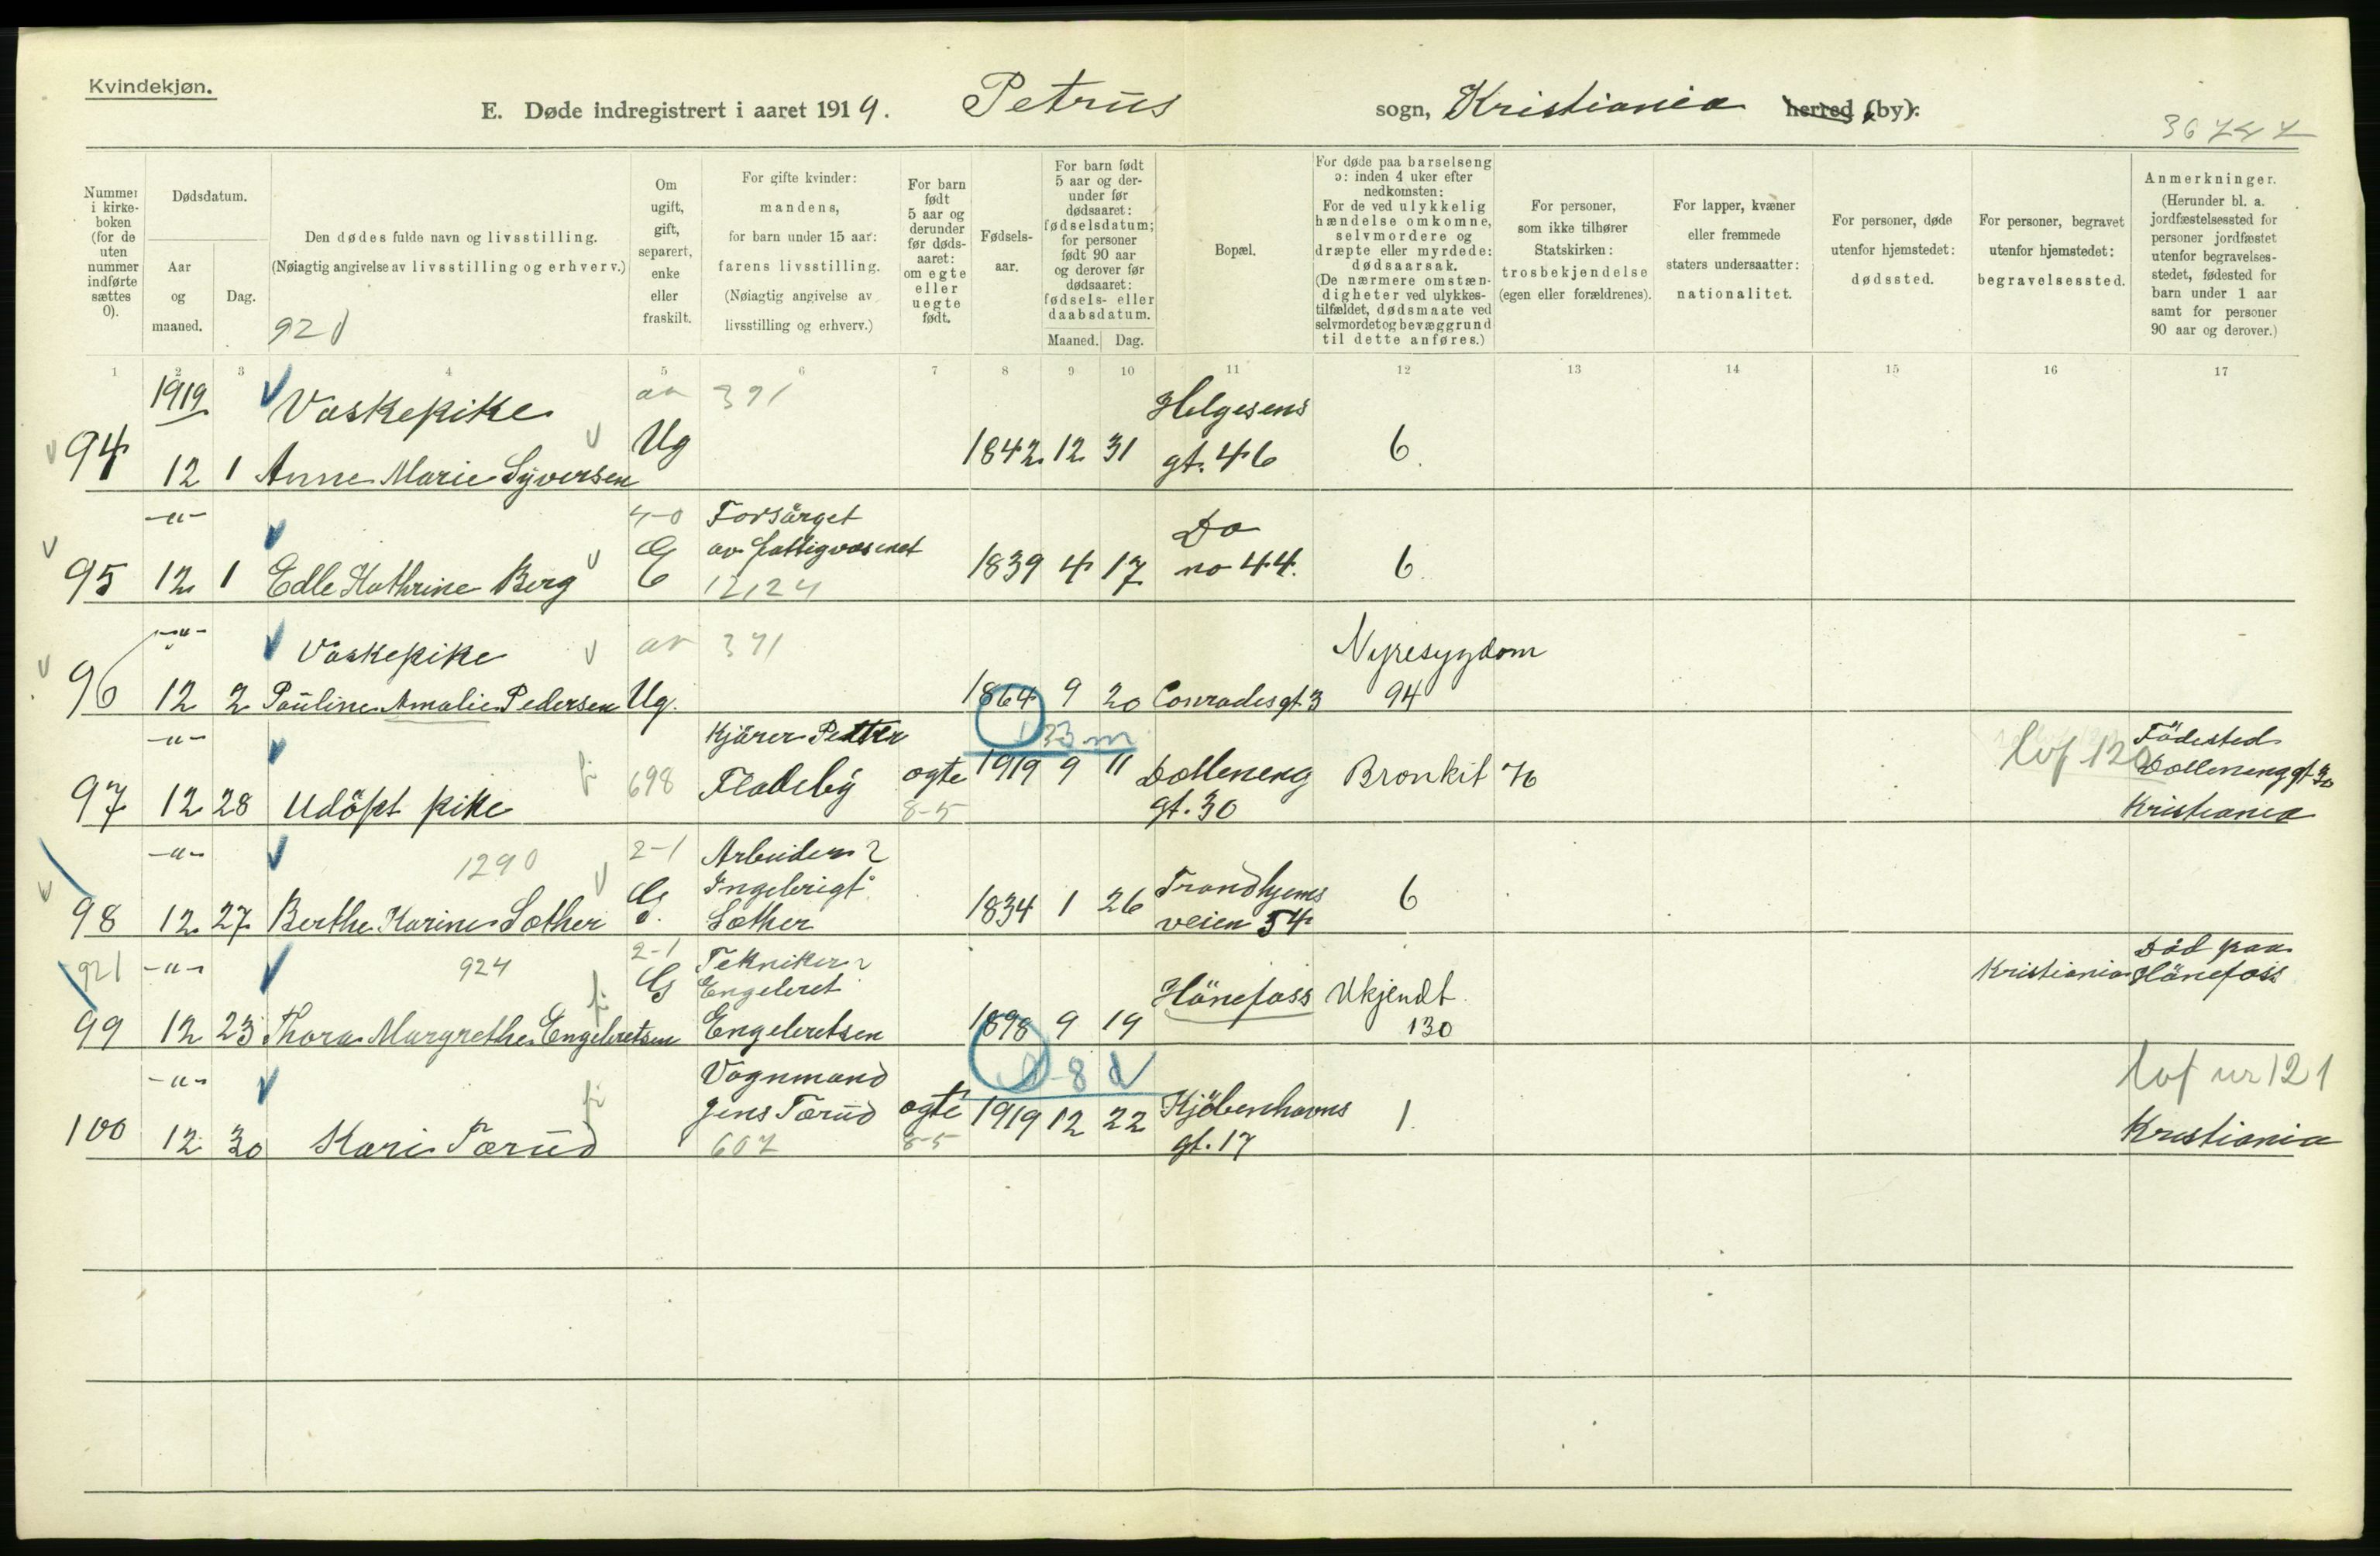 Kvindekjøn.
E. Døde indregistrert i aaret 1919. Petrus sogn, Kristiania herred (by).
Nummer i kirkeboken (for de uten nummer indførte sættes 0).
Dødsdatum.
Aar og maaned.
Dag.
Den dødes fulde navn og livsstilling.
(Nøiagtig angivelse av livsstilling og erhverv.)
92 d
Om ugift, gift, separert, enke eller fraskilt.
For gifte kvinder: mandens, for barn under 15 aar: farens livsstilling.
(Nøiagtig angivelse av livsstilling og erhverv.)
For barn født 5 aar og derunder før dødsaaret: om egte eller uegte født.
Fødselsaar.
For barn født 5 aar og derunder før dødsaaret: fødselsdatum; for personer født 90 aar og derover før dødsaaret: fødsels- eller daabsdatum.
Maaned.
Dag.
Bopæl.
For døde paa barselseng ɔ: inden 4 uker efter nedkomsten:
For de ved ulykkelig hændelse omkomne, selvmordere og dræpte eller myrdede: dødsaarsak.
(De nærmere omstændigheter ved ulykkestilfældet, dødsmaate ved selvmordet og bevæggrund til dette anføres.)
For personer, som ikke tilhører Statskirken: trosbekjendelse (egen eller forældrenes).
For lapper, kvæner eller fremmede staters undersaatter: nationalitet.
For personer, døde utenfor hjemstedet: dødssted.
For personer, begravet utenfor hjemstedet: begravelsessted.
Anmerkninger.
(Herunder bl. a. jordfæstelsessted for personer jordfæstet utenfor begravelsesstedet, fødested for barn under 1 aar samt for personer 90 aar og derover.)
1 2 3 4 5 6 7 8 9 10 11 12 13 14 15 16 17
1919 Vaskepike 391 Helgesens
94 12 1 Anne Marie Syversen Ug 1842 12 31 gt. 46 6
-"- 4-0 Forsörget Do
95 12 1 Edle Kathrine Berg E av fattigvæsenet 1839 4 17 no 44. 6
12124
-"- Vaskepike 371 Nyresygdom
96 12 2 Pauline Amalie Pedersen Ug. 1864 9 20 Conradesgt. 3 94
-"- Kjörer Petter 33 m lof 120 Födested
97 12 28 Udöpt pike 698 Fladeby ægte 1919 9 11 Dælleneng Bronkit 76 Dællenenggt. 30
8-5 gt. 30 Kristiania
-"- 1290 2-1 Arbeider Ingebrigt Trondhjems
98 12 27 Berthe Karine Sæther G. Sæther 1834 1 26 veien 54 6
921 -"- 924 2-1 Tekniker Kristiania Död paa
G Engebret Hönefoss Ukjendt Hönefoss
99 12 23 Thora Margrethe Engebretsen Engebretsen 1898 9 19 130
-"- Vognmand 8 d lof nr 121
100 12 30 Kari Tærud Jens Tærud ægte 1919 12 22 Kjöbenhavns 1. Kristiania
607 8-5 gt. 17